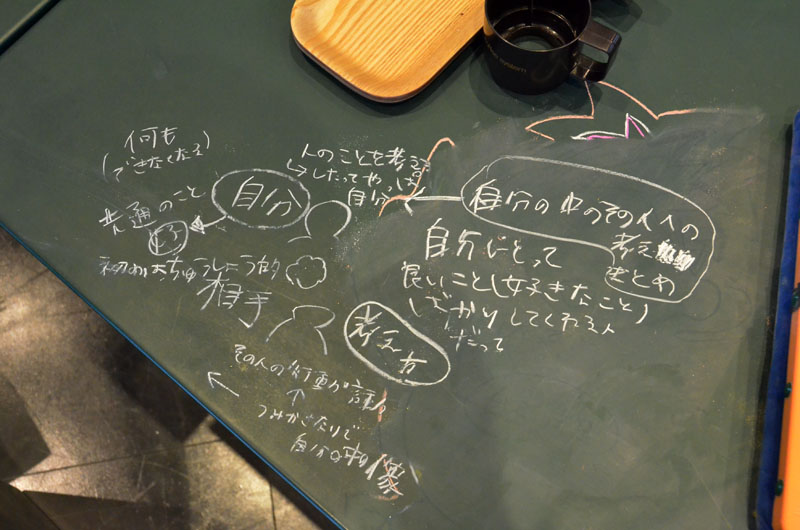 何も
(できなくなる)
人のことを考え
したってやっぱ
自分
自分
共通のこと
相手
自分の中のその人への
考え
まとめ
自分にとって
良いこと(好きなこと)
ばかりしてくれる人
だって
考え方
その人の行動が
つみかさなりで
自分の中の像